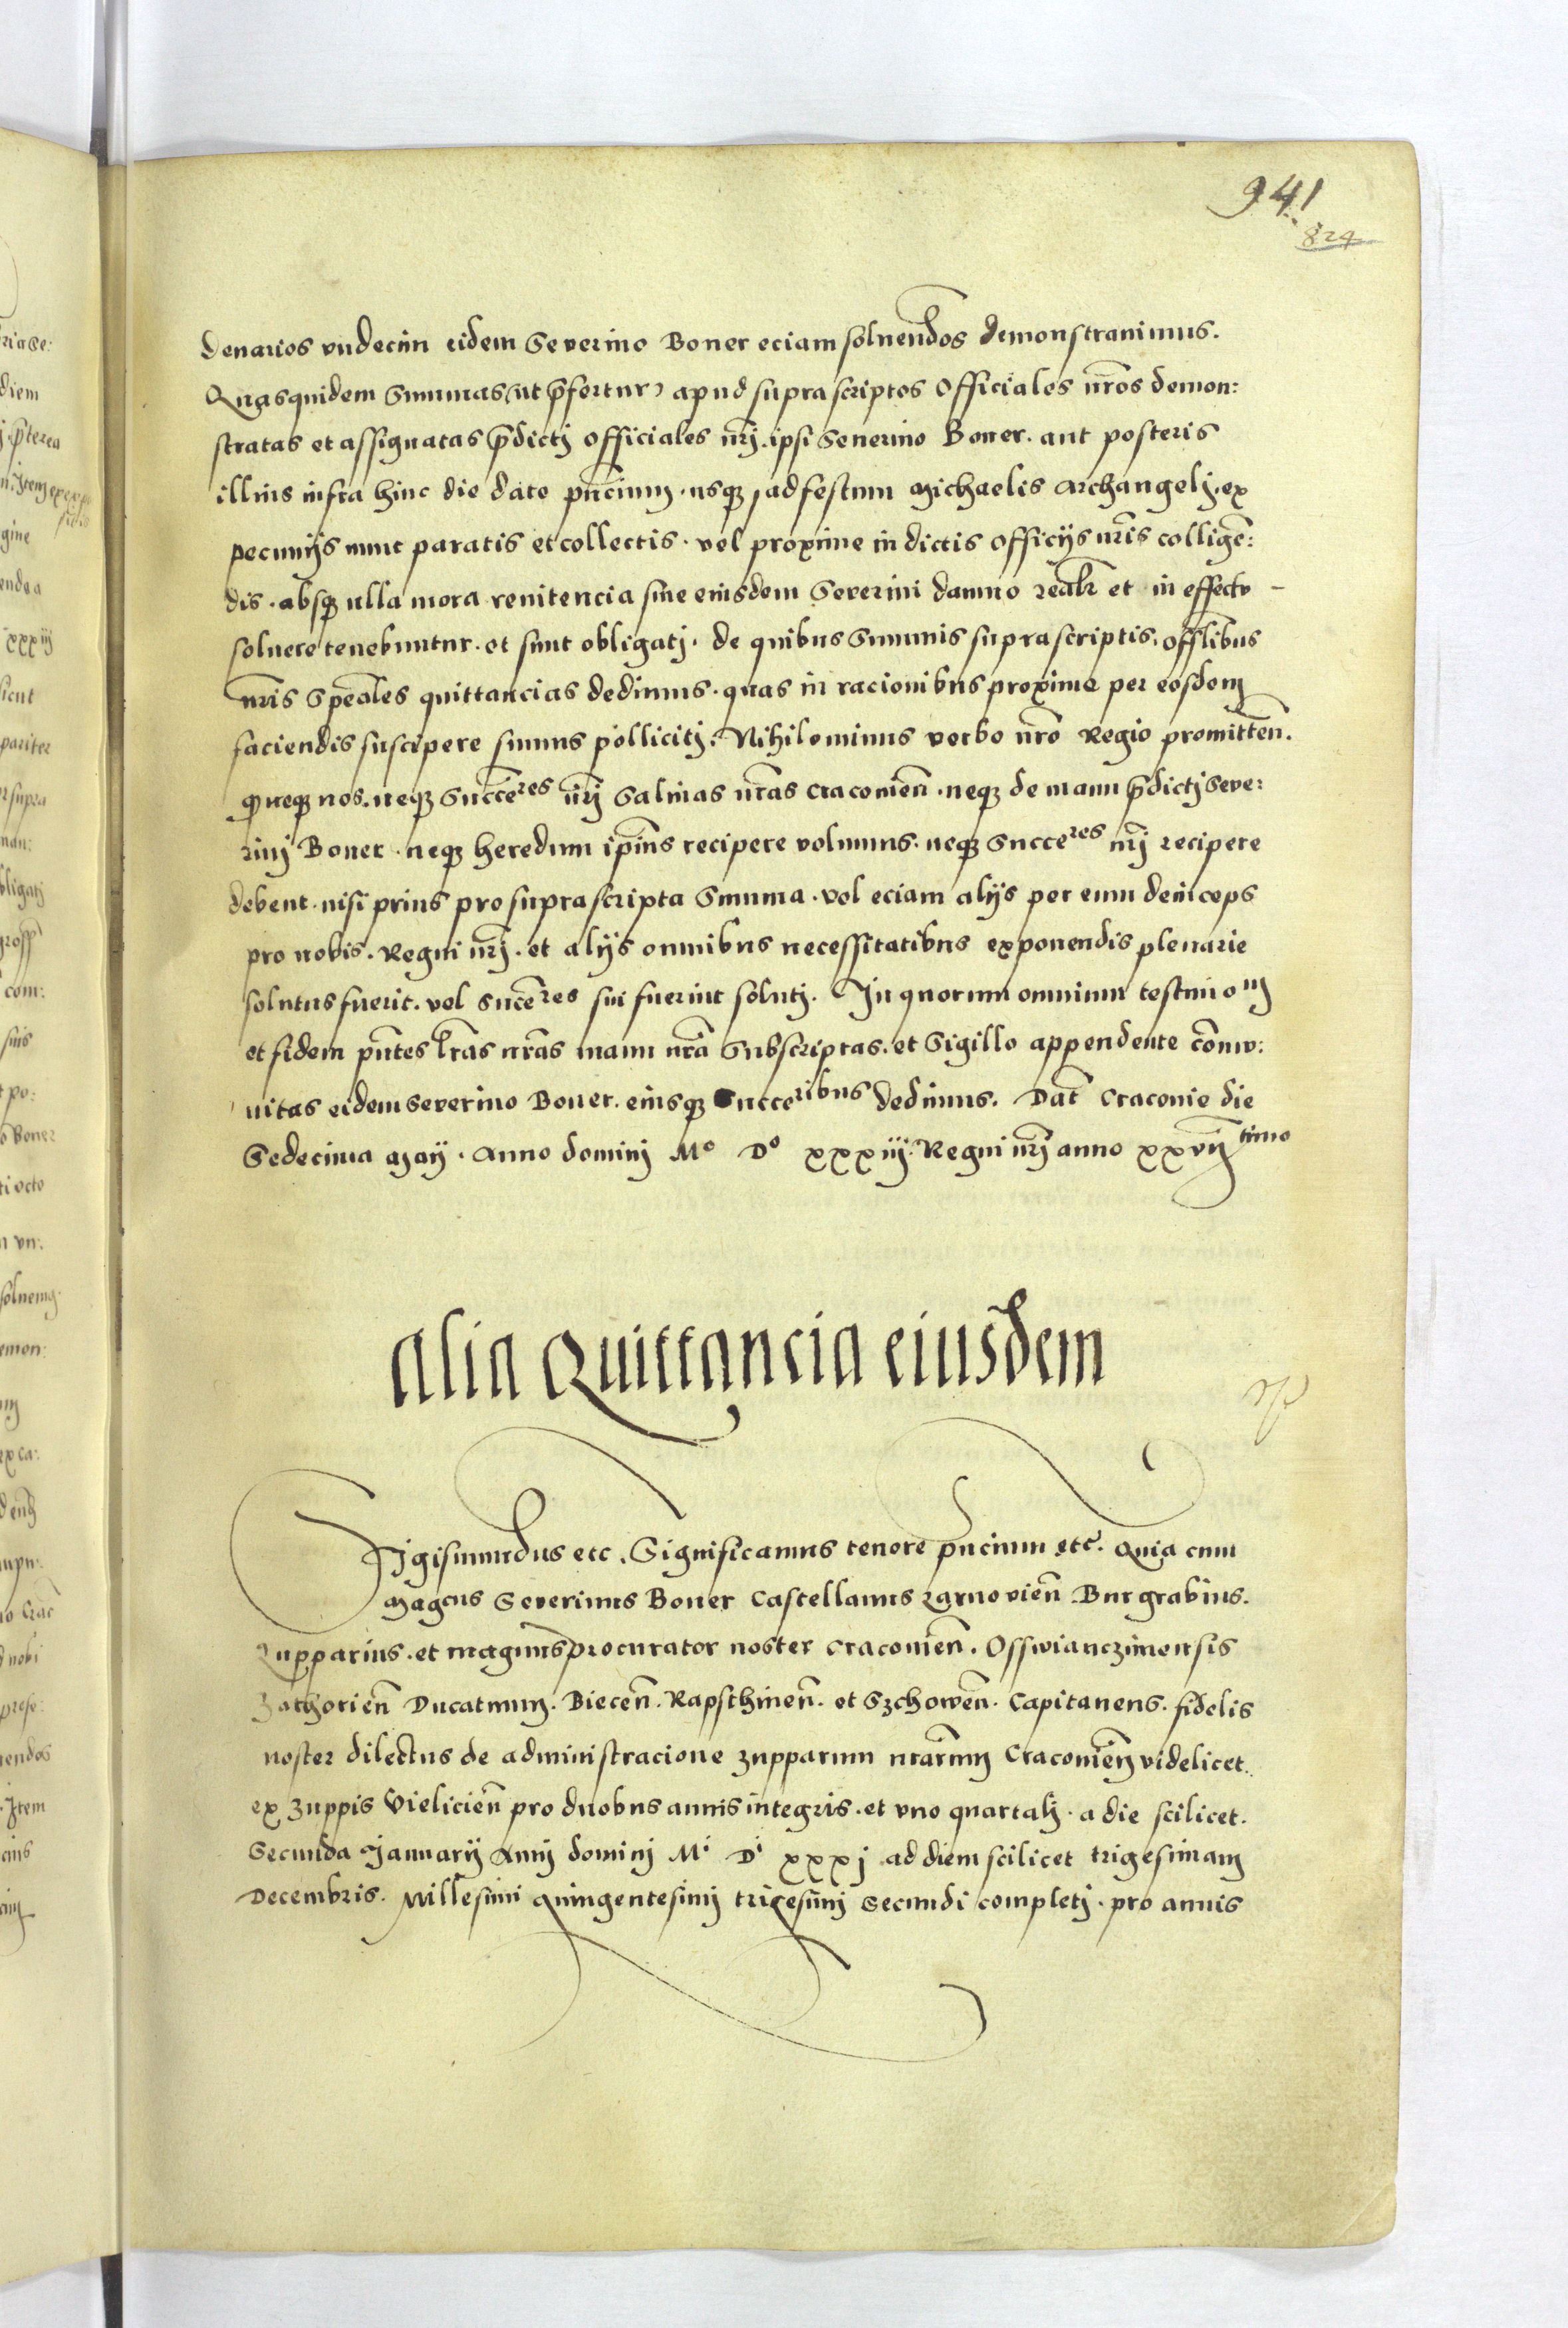 941
824
denarios vndecim eidem Severino Boner eciam soluendos demonstrauimus.
Quasquidem Summas (ut p̄fertur) apud supra scriptos Officiales nr̄os demon:
stratas et assignatas p̄dictj officiales nr̄j. ipsi Seuerino Boner. aut posteris
illius infra hinc die dato pn̄cium. usqʒ ad festum Michaelis Archangelj. ex
pecunijs nunc paratis et collectis. vel proxime in dictis officijs nr̄is colligē:
dis. absqʒ ulla mora renitencia sine eiusdem Severini damno realr̄ et in effectu -
soluere tenebuntur. et sunt obligatj. de quibus Summis supra scriptis. offlibus
nr̄is Spēales quittancias dedimus. quas in racionibus proxime per eosdem
faciendis suscipere sumus pollicitj. Nihilominus verbo nr̄o Regio promitten̄.
ꝙ neqʒ nos. neqʒ Succēres nr̄j Salinas nr̄as Cracouien̄. neqʒ de manu p̄dictj Seve:
rinj Boner. neqʒ heredum ip̄ius recipere volumus. neqʒ Succeres nr̄j recipere
debent. nisi prius pro supra scripta Summa. vel eciam alijs per eum deinceps
pro nobis. Regni nr̄j. et alijs omnibus necessitatibus exponendis plenarie
solutus fuerit. vel Sucēres sui fuerint solutj. In quorum omnium testimonm
et fidem pn̄tes lr̄as nr̄as manu nr̄a Subscriptas. et Sigillo appendente com̄u:
nitas eidem Severino Boner. eiusqʒ Succeribus dedimus. Dat̄ Cracouie die
Sedecima Maij. Anno dominj Mo Do xxxiij. Regni nr̄j anno xxvijtimo
Alia Quittancia eiusdem
Sigismundus etc. Significamus tenore pn̄cium etc̄. Quia cum
Magcus Severinus Boner Castellanus Zarnovien̄ Burgrabius.
Zupparius. et magnus procurator noster Cracouien̄. Osswianczimensis
Zathorien̄ Ducatuum. Biecen̄. Rapsthinen̄. et Szchowen̄. Capitaneus. fidelis
noster dilectus de administracione zupparum nr̄arum Cracouien̄ videlicet.
ex zuppis Vielicien̄ pro duobus annis integris. et vno quartalj. a die scilicet.
Secunda Januarij Annj dominj Mi Di xxxj ad diem scilicet trigesimam
Decembris. Millesimi quingentesimj tricesimj Secundi completj. pro annis